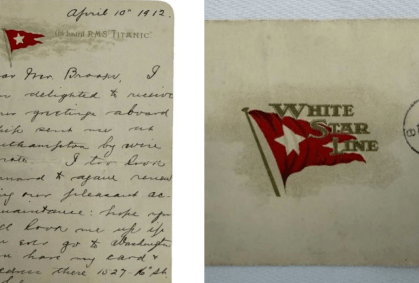 April 10th 1912.
On board R.M.S. "TITANIC"
Mrs Brooks, I
delighted to receive
greetings aboard
ship sent me at
Southampton by wire
I too look
forward to again renew
ing our pleasant ac
quaintance: hope you
will look me up if
ever go to Washington
have my card &
address there 1527-16th St
WHITE
STAR
LINE